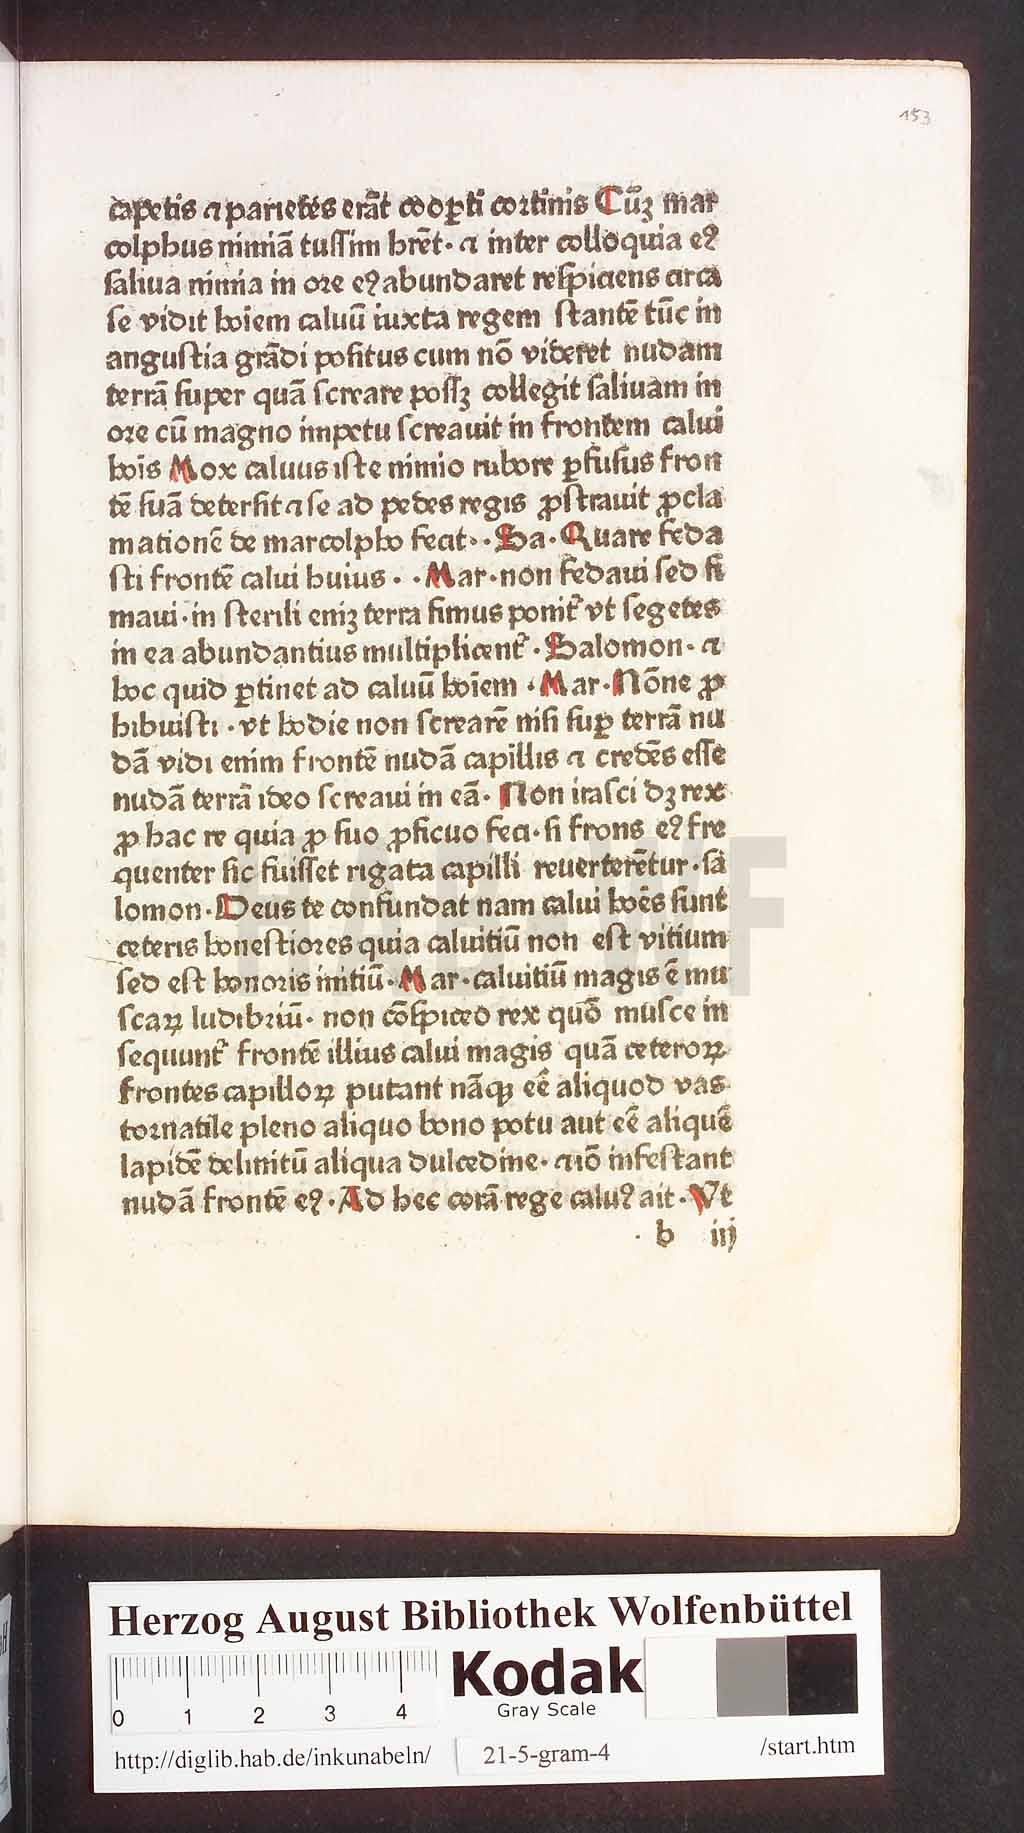 153
capetis ⁊ parietes erāt coopti cortinis Cūꝫ mar
colphus nimiā tussim hret̄· ⁊ inter colloquia eꝰ
saliua nimia in ore eꝰ abundaret respiciens circa
se vidit hoiem caluū iuxta regem stantē tūc in
angustia grādi positus cum nō videret nudam
terrā super quā screare possꝫ collegit saliuam in
ore cū magno impetu screauit in frontem calui
hois Mox caluus iste nimio rubore ꝑfusus fron
tē suā detersit ⁊ se ad pedes regis ꝓstrauit ꝓcla
mationē de marcolpho fecit·· Sa· Quare feda
sti frontē calui huius·· Mar·non fedaui sed fi
maui·in sterili eniꝫ terra fimus ponit᷑ vt segetes
in ea abundantius multiplicent᷑· Salomon· ⁊
hoc quid ꝑtinet ad caluū hoiem· Mar·Nōne ꝓ
hibuisti· vt hodie non screarē nisi suꝑ terrā nu
dā vidi enim frontē nudā capillis ⁊ credēs esse
nudā terrā ideo screaui in eā· Non irasci dꝫ rex
ꝓ hac re quia ꝓ suo ꝓficuo feci·si frons eꝰ fre
quenter sic fuisset rigata capilli reuerterētur·sa
lomon·Deus te confundat nam calui hoēs sunt
ceteris honestiores quia caluitiū non est vitium
sed est honoris initiū·Mar·caluitiū magis ē mu
scaꝝ ludibriū· non cōspiceo rex quō musce in
sequunt᷑ frontē illius calui magis quā ceteroꝝ
frontes capilloꝝ putant nāqꝫ eē aliquod vas
tornatile pleno aliquo bono potu aut eē aliquē
lapidē delinitū aliqua dulcedine· ⁊iō infestant
nudā frontē eꝰ·Ad hec corā rege caluꝰ ait·Vt
b iij
HAB WF
Herzog August Bibliothek Wolfenbüttel
Kodak
Gray Scale
0 1 2 3 4
http://diglib.hab.de/inkunabeln/ 21-5-gram-4 /start.htm